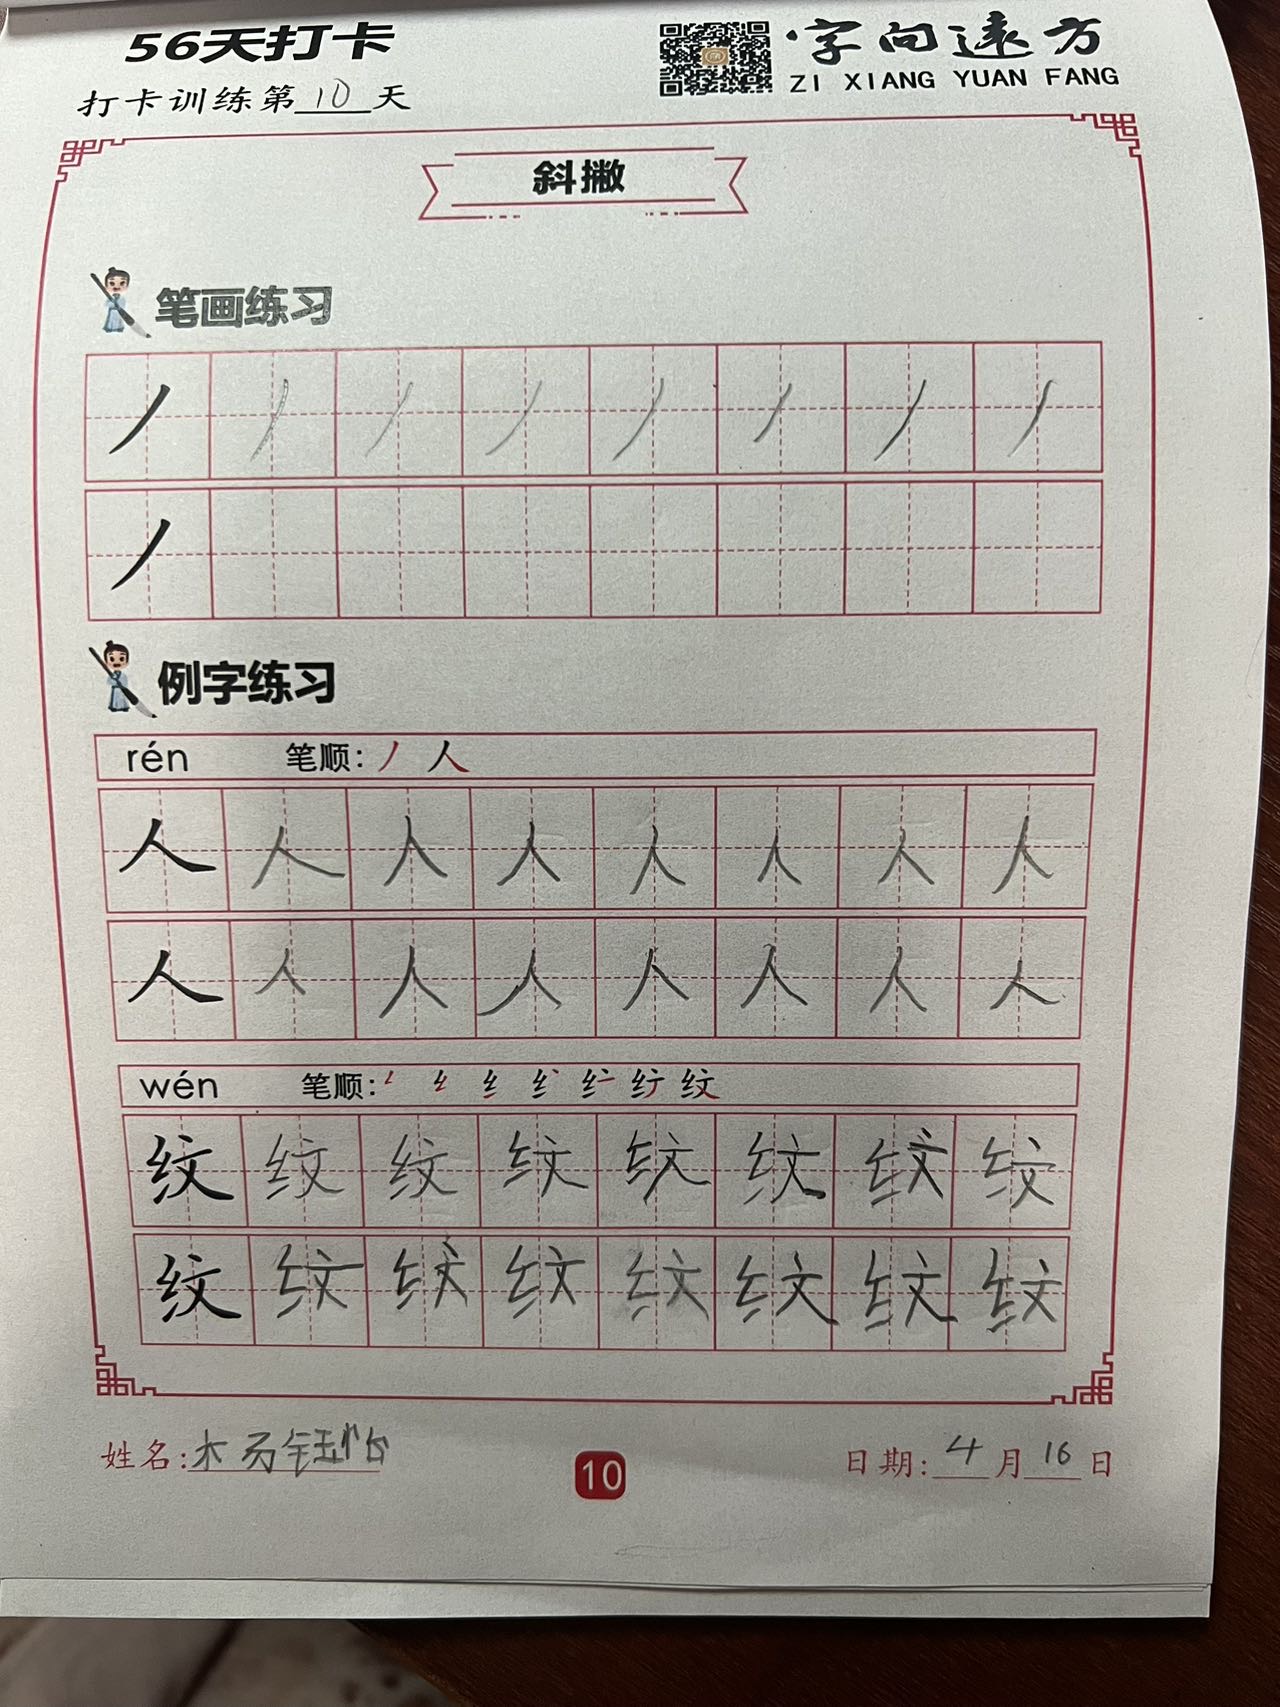 56天打卡
字向远方
ZI XIANG YUAN FANG
打卡训练第10天
斜撇
笔画练习
丿丿丿丿丿丿丿丿
丿
例字练习
rén 笔顺: 丿 人
人人人人人人人人
人人人人人人人人
wén 笔顺:
纹纹纹纹纹纹纹纹
纹纹纹纹纹纹纹纹
姓名:
10
日期: 4月16日